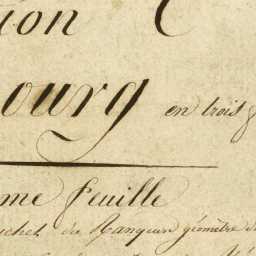 ion C
ourg en trois
me feuille
uchet du Ranqueur géomètre d